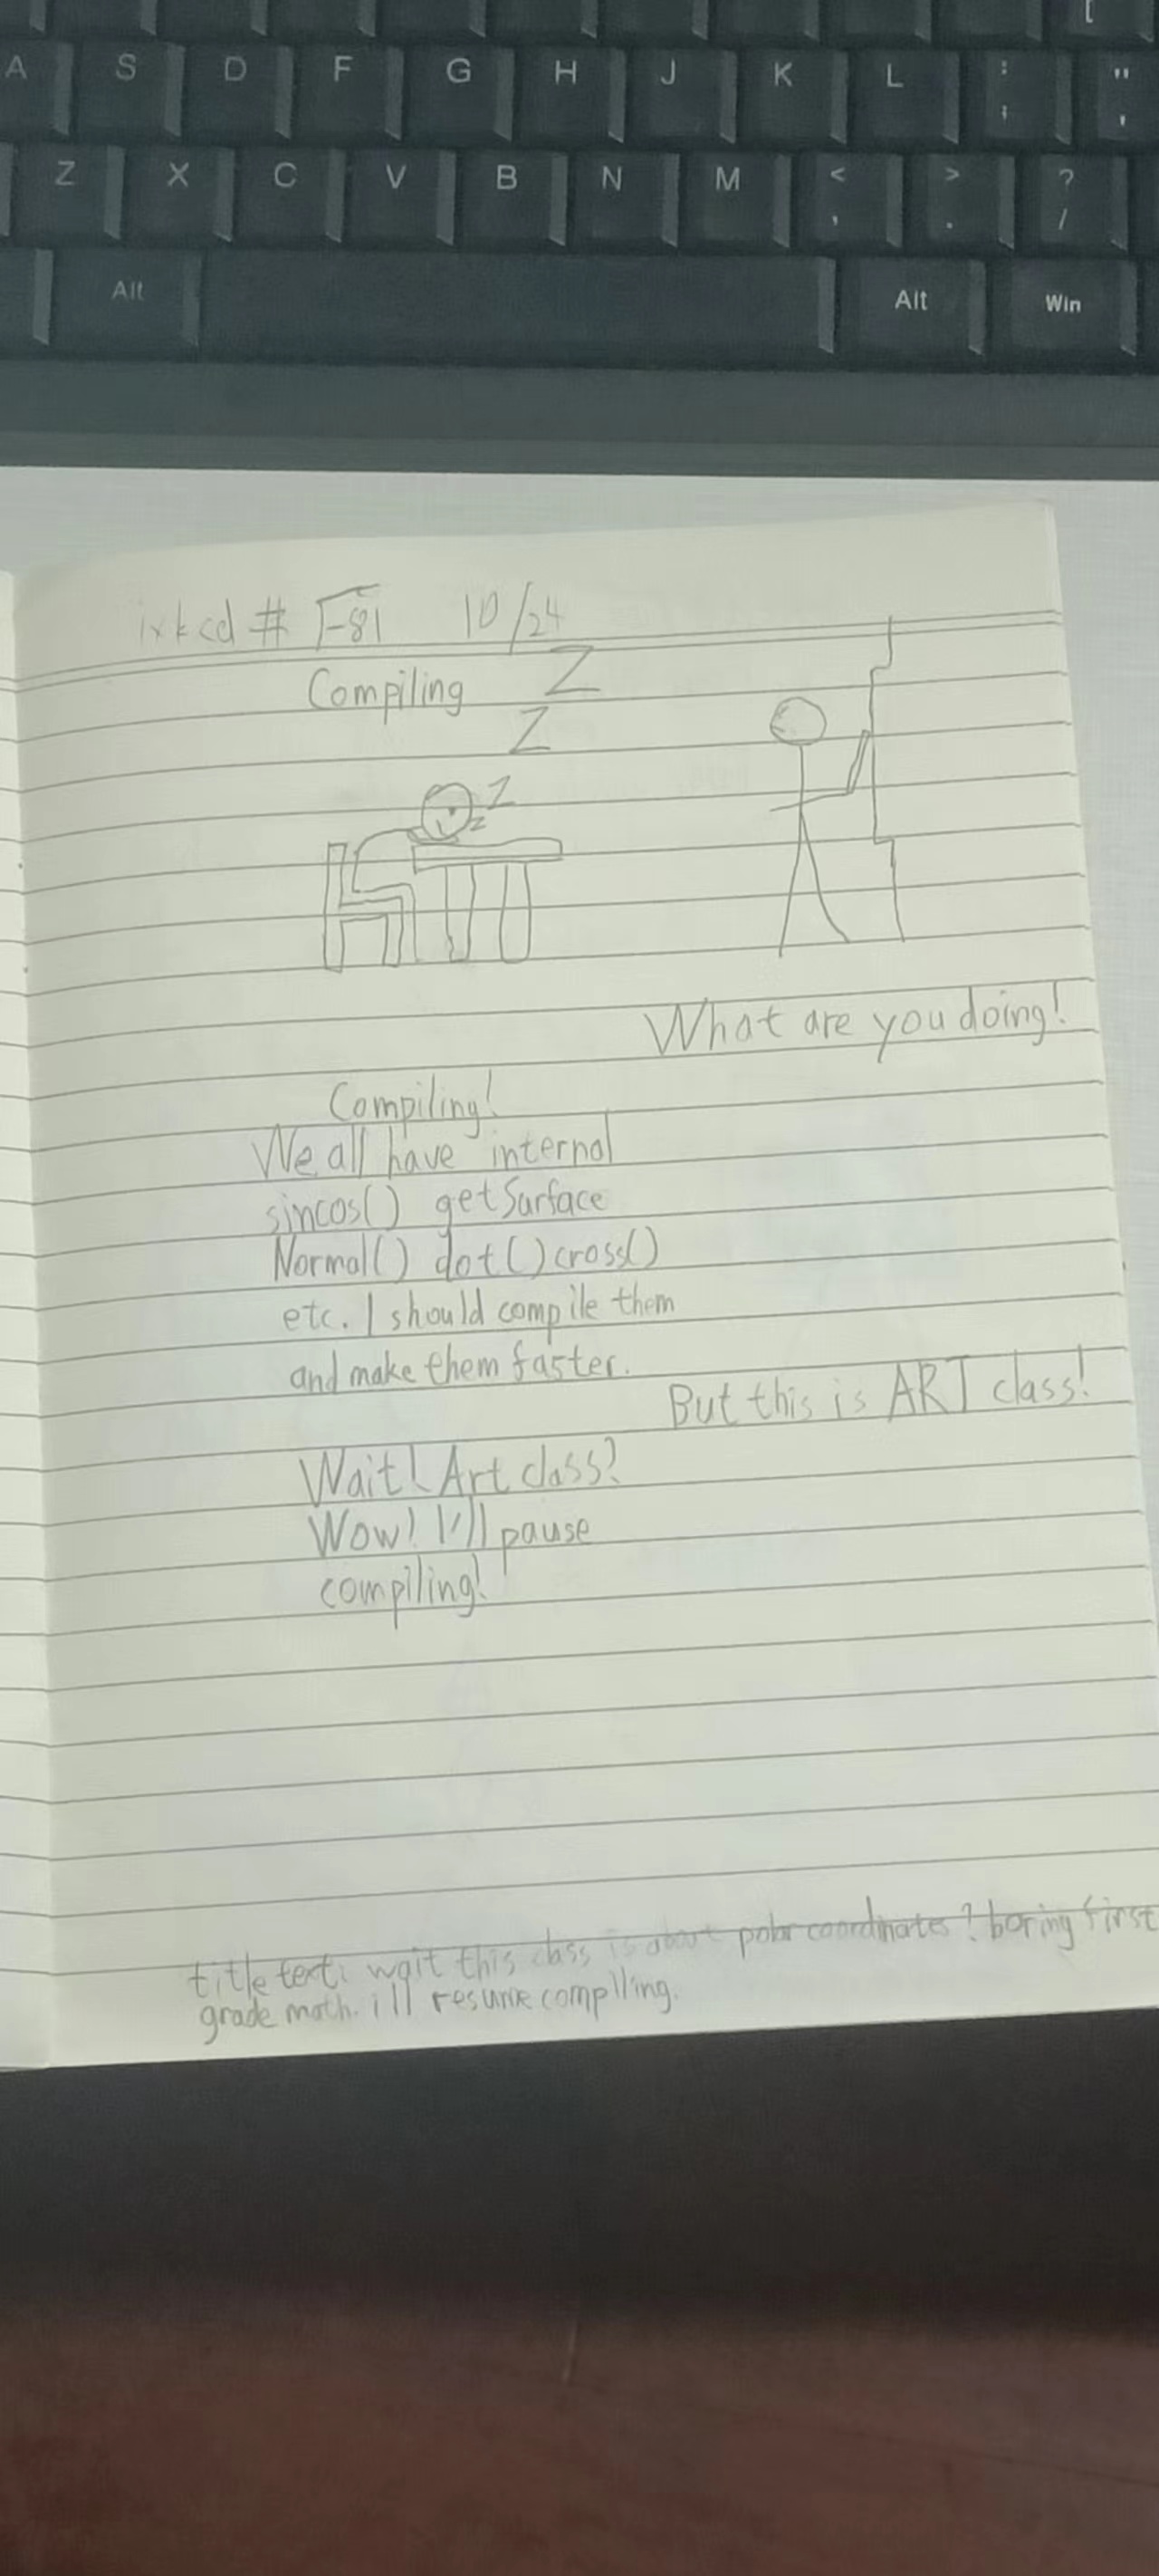 [
A S D F G H J K L : ; " '
Z X C V B N M < , > . ? /
Alt Alt Win
ixkcd # √-81 10/24
Compiling
Z
Z
Z
z
What are you doing!
Compiling!
We all have internal
sincos() getSurface
Normal() dot() cross()
etc. I should compile them
and make them faster.
But this is ART class!
Wait! Art class?
Wow! I'll pause
compiling!
title text: wait this class is about polar coordinates? boring first
grade math. i'll resume compiling.